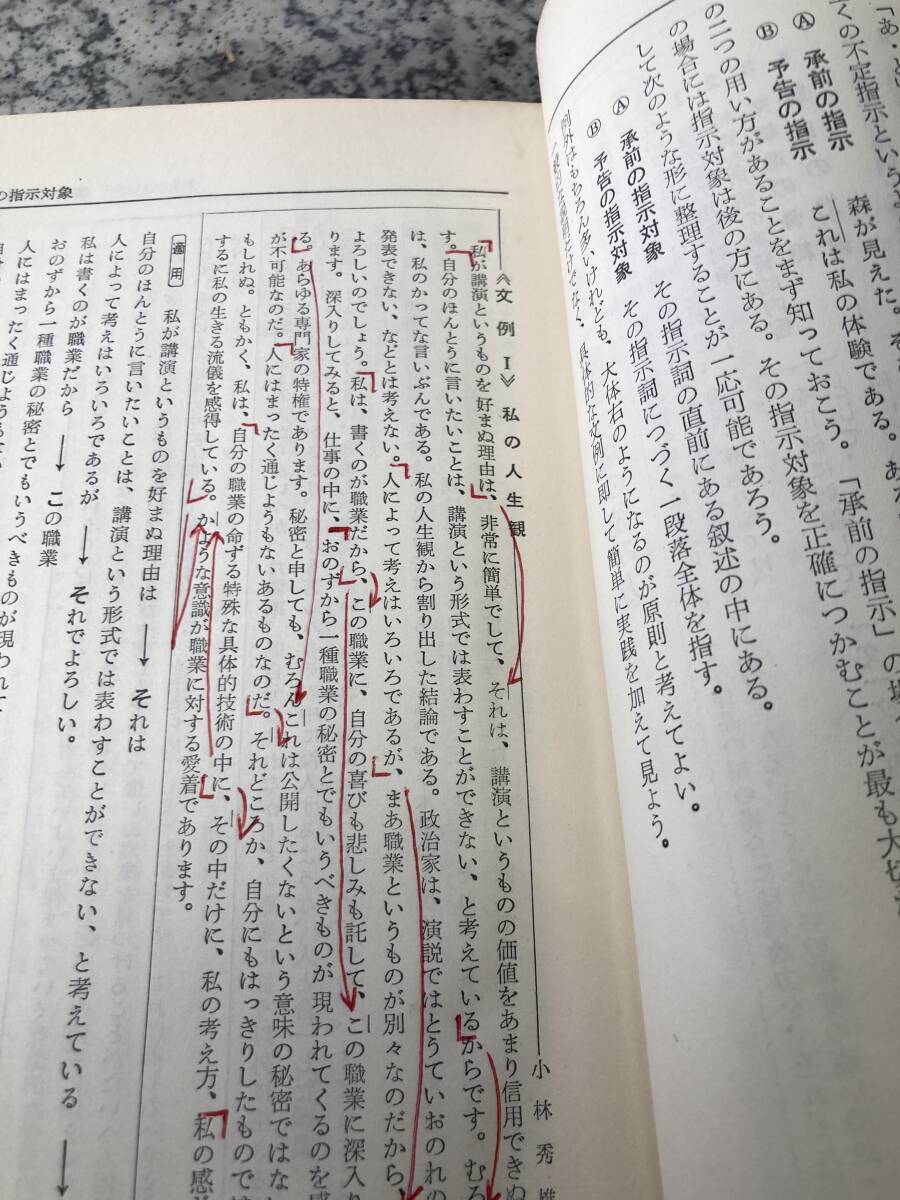 「あ・
くの不定指示という
Ⓐ 承前の指示 森が見えた。ある
Ⓑ 予告の指示 これは私の体験である。
の二つの用い方があることをまず知っておこう。「承前の指示」の場
の場合には指示対象は後の方にある。その指示対象を正確につかむことが最も大切
して次のような形に整理することが一応可能であろう。
Ⓐ 承前の指示対象 その指示詞の直前にある叙述の中にある。
Ⓑ 予告の指示対象 その指示詞につづく一段落全体を指す。
例外はもちろん多いけれども、大体右のようになるのが原則と考えてよい。
具体的な文例に即して簡単に実践を加えて見よう。
の指示対象
《文例Ⅰ》 私の人生観 小林秀雄
私が講演というものを好まぬ理由は、非常に簡単でして、それは、講演というものの価値をあまり信用できぬ
す。自分のほんとうに言いたいことは、講演という形式では表わすことができない、と考えているからです。むろ
は、私のかってな言いぶんである。私の人生観から割り出した結論である。政治家は、演説ではとうていおのれの
発表できない、などとは考えない。人によって考えはいろいろであるが、まあ職業というものが別々なのだから
よろしいのでしょう。私は、書くのが職業だから、この職業に、自分の喜びも悲しみも託して、この職業に深入り
ります。深入りしてみると、仕事の中に、おのずから一種職業の秘密とでもいうべきものが現われてくるのを感
る。あらゆる専門家の特権であります。秘密と申しても、むろんこれは公開したくないという意味の秘密ではな
が不可能なのだ。人にはまったく通じようもないあるものなのだ。それどころか、自分にもはっきりしたもので
もしれぬ。ともかく、私は、自分の職業の命ずる特殊な具体的技術の中に、その中だけに、私の考え方、私の感
するに私の生きる流儀を感得している。かような意識が職業に対する愛着であります。
適用 私が講演というものを好まぬ理由は → それは
自分のほんとうに言いたいことは、講演という形式では表わすことができない、と考えている →
人によって考えはいろいろであるが → それでよろしい。
私は書くのが職業だから → この職業
おのずから一種職業の秘密とでもいうべきものが現われて
人にはまったく通じようもない